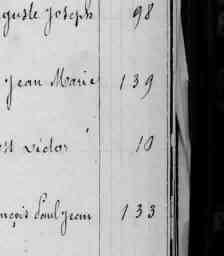 guste Joseph 98
Jean Marie 139
st Victor 10
nçois Paul Jean 133